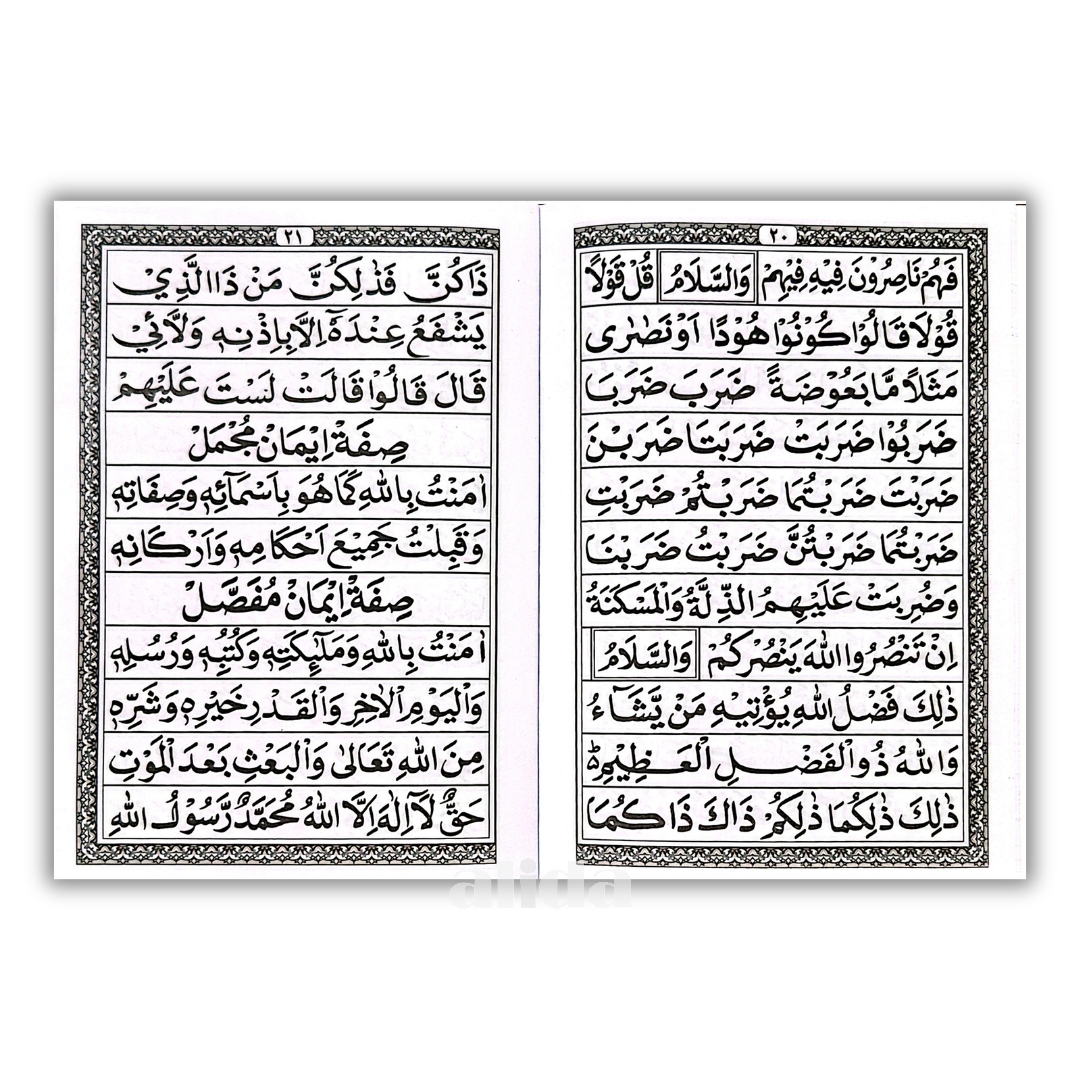 ٢٠
فَهُمْ نَاصِرُونَ فِيْهِ فِيْهِمْ وَالسَّلَامُ قُلْ قَوْلًا
قُوْلَا قَالُوْا كُوْنُوْا هُوْدًا اَوْ نَصٰرٰى
مَثَلًا مَّا بَعُوْضَةً ضَرَبَ ضَرَبَا
ضَرَبُوْا ضَرَبَتْ ضَرَبَتَا ضَرَبْنَ
ضَرَبْتَ ضَرَبْتُمَا ضَرَبْتُمْ ضَرَبْتِ
ضَرَبْتُمَا ضَرَبْتُنَّ ضَرَبْتُ ضَرَبْنَا
وَضُرِبَتْ عَلَيْهِمُ الذِّلَّةُ وَالْمَسْكَنَةُ
اِنْ تَنْصُرُوا اللّٰهَ يَنْصُرْكُمْ وَالسَّلَامُ
ذٰلِكَ فَضْلُ اللّٰهِ يُؤْتِيْهِ مَنْ يَّشَآءُ
وَاللّٰهُ ذُو الْفَضْلِ الْعَظِيْمِ ط
ذٰلِكَ ذٰلِكُمَا ذٰلِكُمْ ذَاكَ ذَاكُمَا
٢١
ذَاكُنَّ فَذٰلِكُنَّ مَنْ ذَا الَّذِيْ
يَشْفَعُ عِنْدَهٗٓ اِلَّا بِاِذْنِهٖ وَلَائِيْ
قَالَ قَالُوْا قَالَتْ لَسْتَ عَلَيْهِمْ
صِفَةْ اِيْمَانْ مُجْمَلْ
اٰمَنْتُ بِاللّٰهِ كَمَا هُوَ بِاَسْمَآئِهٖ وَصِفَاتِهٖ
وَقَبِلْتُ جَمِيْعَ اَحْكَامِهٖ وَاَرْكَانِهٖ
صِفَةْ اِيْمَانْ مُفَصَّلْ
اٰمَنْتُ بِاللّٰهِ وَمَلٰٓئِكَتِهٖ وَكُتُبِهٖ وَرُسُلِهٖ
وَالْيَوْمِ الْاٰخِرِ وَالْقَدْرِ خَيْرِهٖ وَشَرِّهٖ
مِنَ اللّٰهِ تَعَالٰى وَالْبَعْثِ بَعْدَ الْمَوْتِ
حَقٌّ لَآ اِلٰهَ اِلَّا اللّٰهُ مُحَمَّدٌ رَّسُوْلُ اللّٰهِ
alida